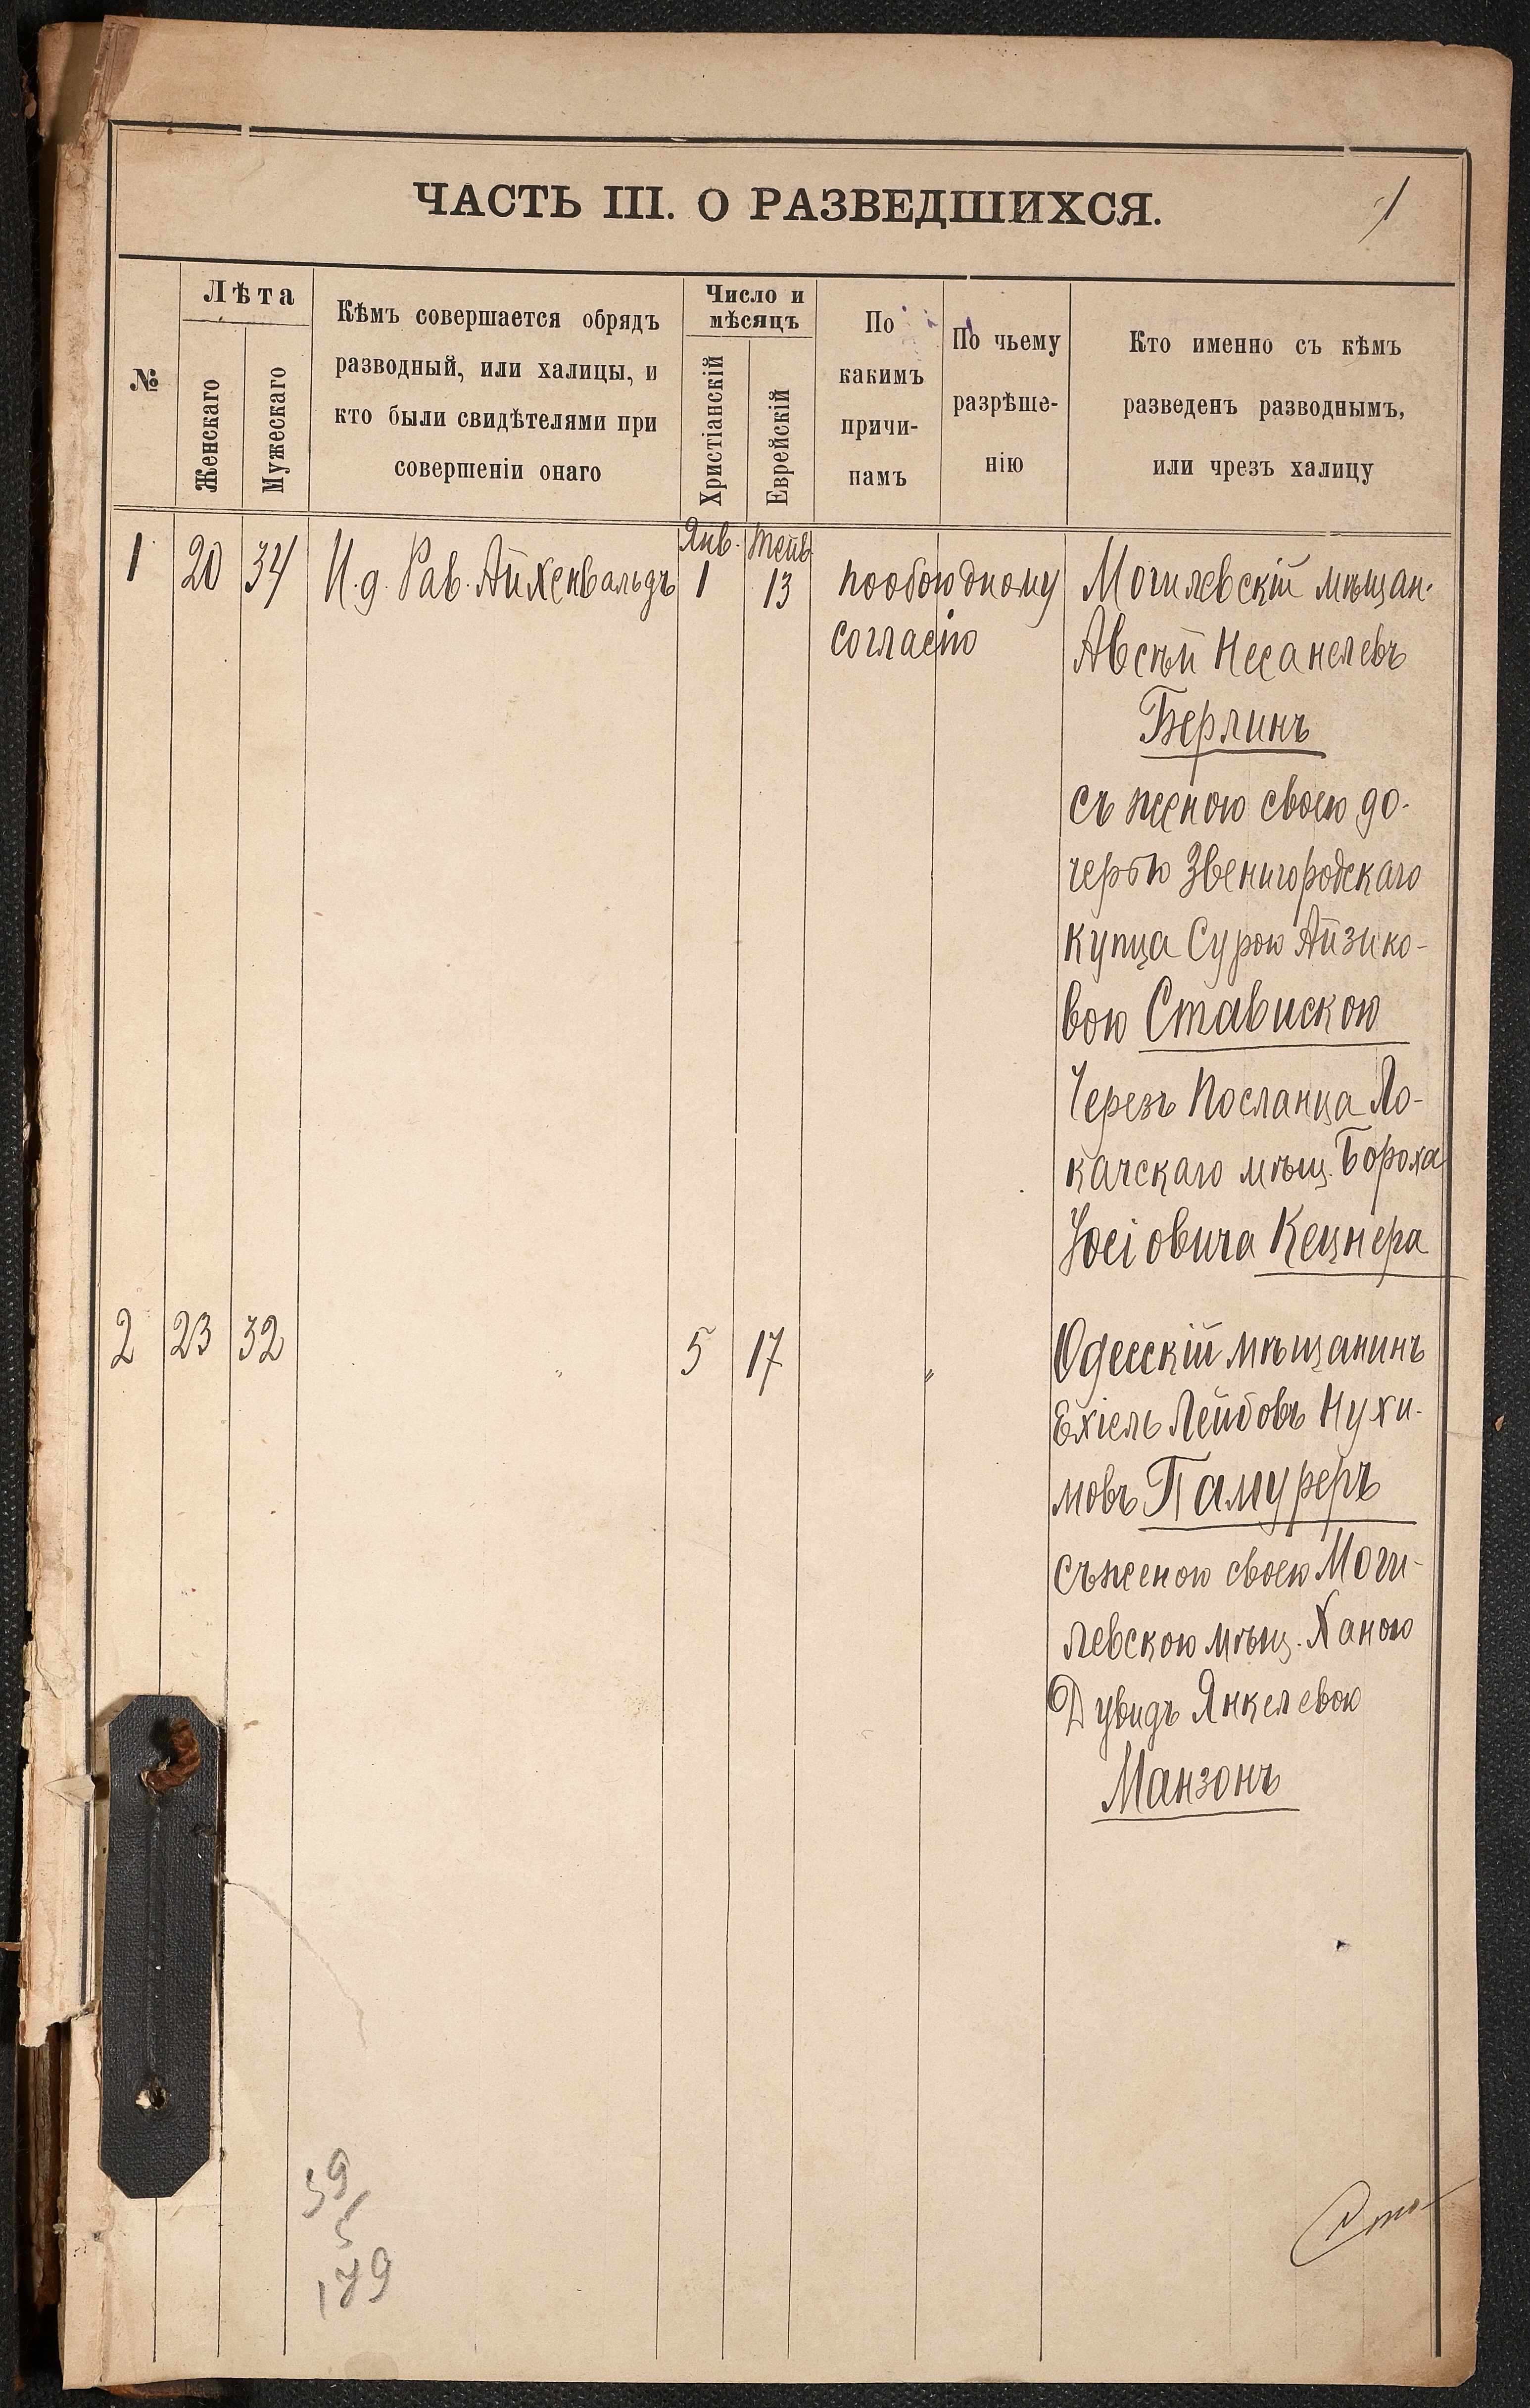 ЧАСТЬ III. О РАЗВЕДШИХСЯ.
1
№
Лѣта
Женскаго
Мужескаго
Кѣмъ совершается обрядъ
разводный, или халицы, и
кто были свидѣтелями при
совершеніи онаго
Число и
мѣсяцъ
Христіанскій
Еврейскій
По
какимъ
причи-
намъ
По чьему
разрѣше-
нію
Кто именно съ кѣмъ
разведенъ разводнымъ,
или чрезъ халицу
Янв. Тейв
1 20 34 И.д. Рав. Айхенвальдъ 1 13 по обоюдному
согласію
Могилевскій мѣщан.
Авсѣй Несанелевъ
Берлинъ
съ женою своею до-
черью Звенигородскаго
купца Сурою Айзико-
вою Ставискою
Черезъ посланца Ло-
качскаго мѣщ. Бороха
Іосіовича Кецнера
2 23 32 " 5 17 "
Одесскій мѣщанинъ
Ехіель Лейбовъ Нухи-
мовъ Памуреръ
съ женою своею Моги-
левскою мѣщ. Ханою
Дувидъ Янкелевою
Манзонъ
39
5
179